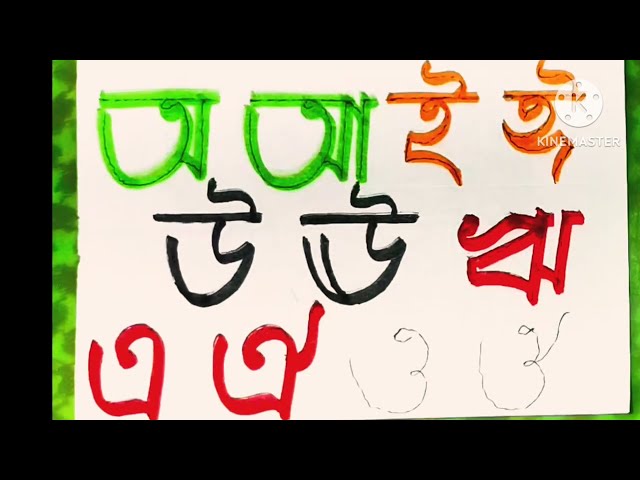 অ আ ই ঈ
KINEMASTER
উ ঊ ঋ
এ ঐ ও ঔ